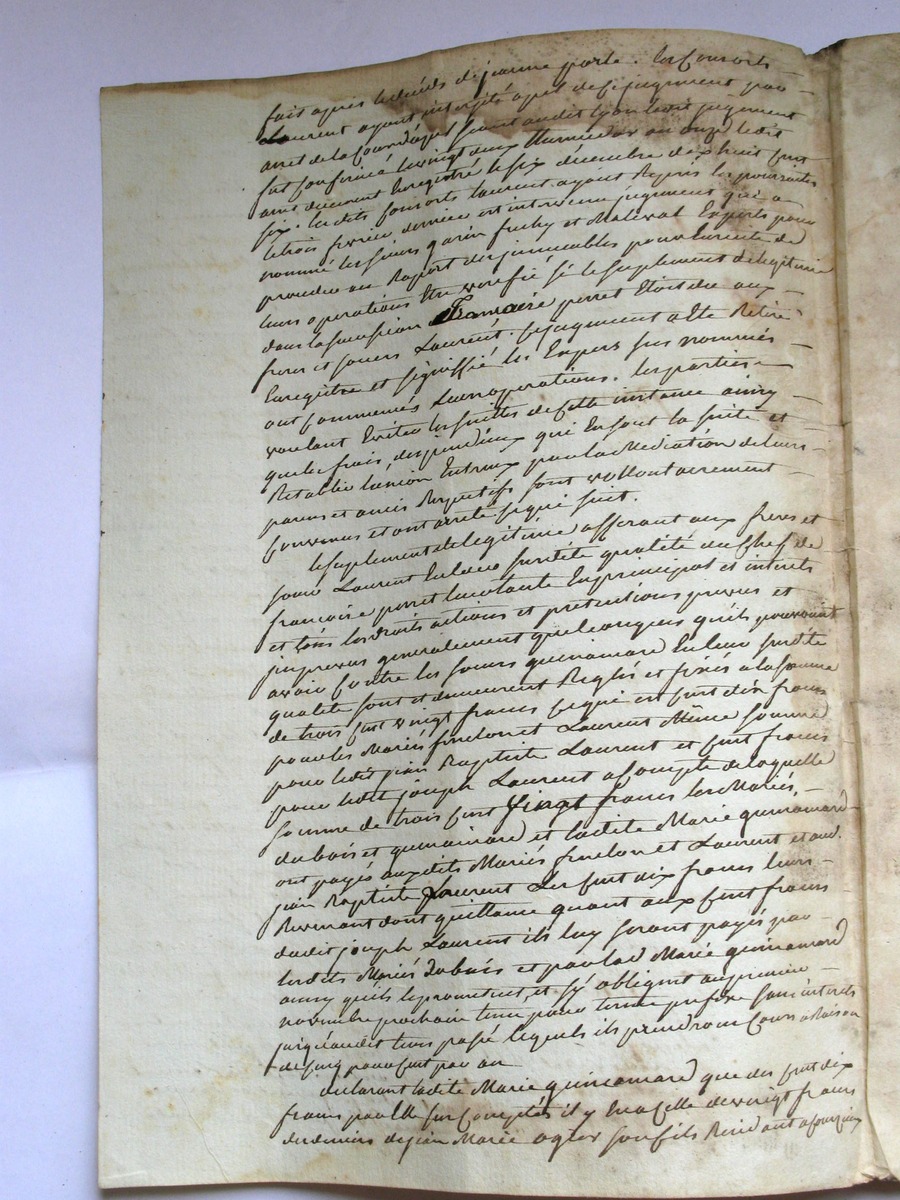 fait après le décès de jeanne porte. les Consorts
Laurent ayant interjeté apel de ce jugement par
arret de la Cour d'apel seant audit Lyon ledit jugement
fut Confirmé le vingt deux Thermidor an onze ledit
arret duement Enregistré le six décembre dix huit cent
six. lesdits Consorts laurent ayant Repris les poursuites
le trois fevrier dernier est intervenu jugement qui a
nommé les sieurs garin fuchy et Maleval Experts pour
proceder au Raport des immeubles pour Ensuite de
leurs operations Etre verifié si le suplement de legitime
dans la succession francoise perret Etoit du aux
freres et soeurs Laurent. Ce jugement a Eté Retiré
Enregistré et signiffié les Experts sus nommés
ont Commencés Leurs operations. les parties
voulant Eviter les suittes de cette instance ainsy
que les frais, dispendieux qui En sont la suite et
Retablir lunion Entreux par la Mediation de leurs
parens et amis Respectifs sont vollontairement
Convenus et ont arreté ce qui suit.
le suplement de legitime afferant aux freres et
soeur Laurent En leur surdite qualité du Chef de
francoise perret leur tante En principal et interets
et tous les droits actions et pretentions prevus et
imprevus generalement quelconques qu'ils pourroient
avoir Contre les soeurs quinamard En leur surdite
qualité sont et demeurent Reglés et fixés a la somme
de trois Cent vingt francs ce qui est Cent dix francs
pour les Mariés finelon et Laurent Même somme
pour ledit jean Baptiste Laurent et Cent francs
pour ledit joseph Laurent a Compte de laquelle
somme de trois Cent Vingt francs les Mariés
dubois et quinamard et ladite Marie quinamard
ont payés auxdits Mariés finelon et Laurent et aud.
jean Baptiste Laurent Les Cent dix francs leurs
Revenant dont quittance quant aux Cent francs
dudit joseph Laurent ils luy seront payés par
lesdits Mariés dubois et par lad Marie quinamard
ainsy qu'ils le promettent, et s'y obligent au premier
novembre prochain tems pour terme prefixe sans interets
jusqu'audit tems passé lequels ils prendront Cours a Raison
de Cinq pour Cent par an
declarant ladite Marie quinamard que des Cent dix
francs par Elle sus Comptés il y En a Celle de vingt francs
des deniers de jean Marie son fils Residant a